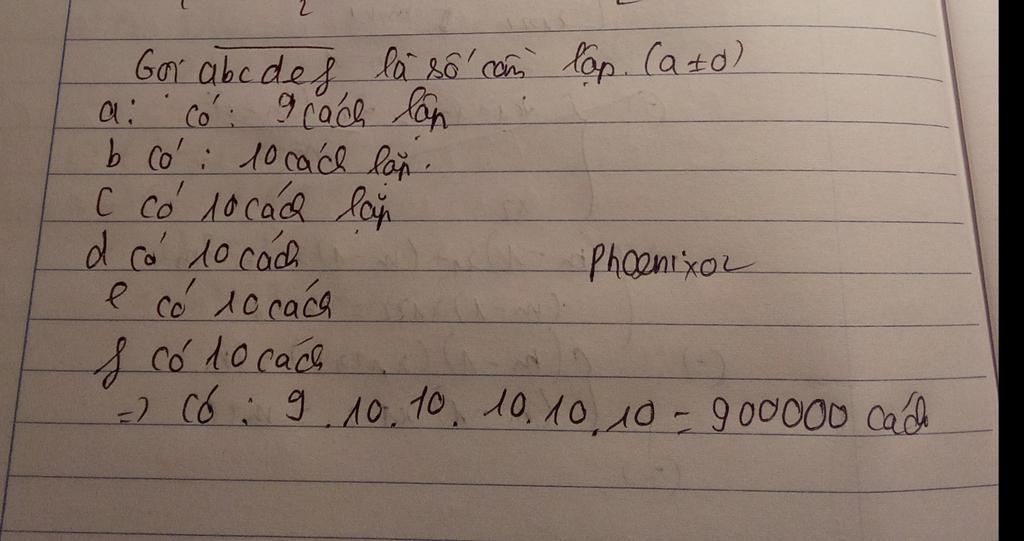 Gọi abcdef là số cần lập. (a ≠ 0)
a: có: 9 cách lập
b có: 10 cách lập.
c có 10 cách lập
d có 10 cách
Phoenix02
e có 10 cách
f có 10 cách
=> có : 9 . 10 . 10 . 10 . 10 . 10 = 900000 cách